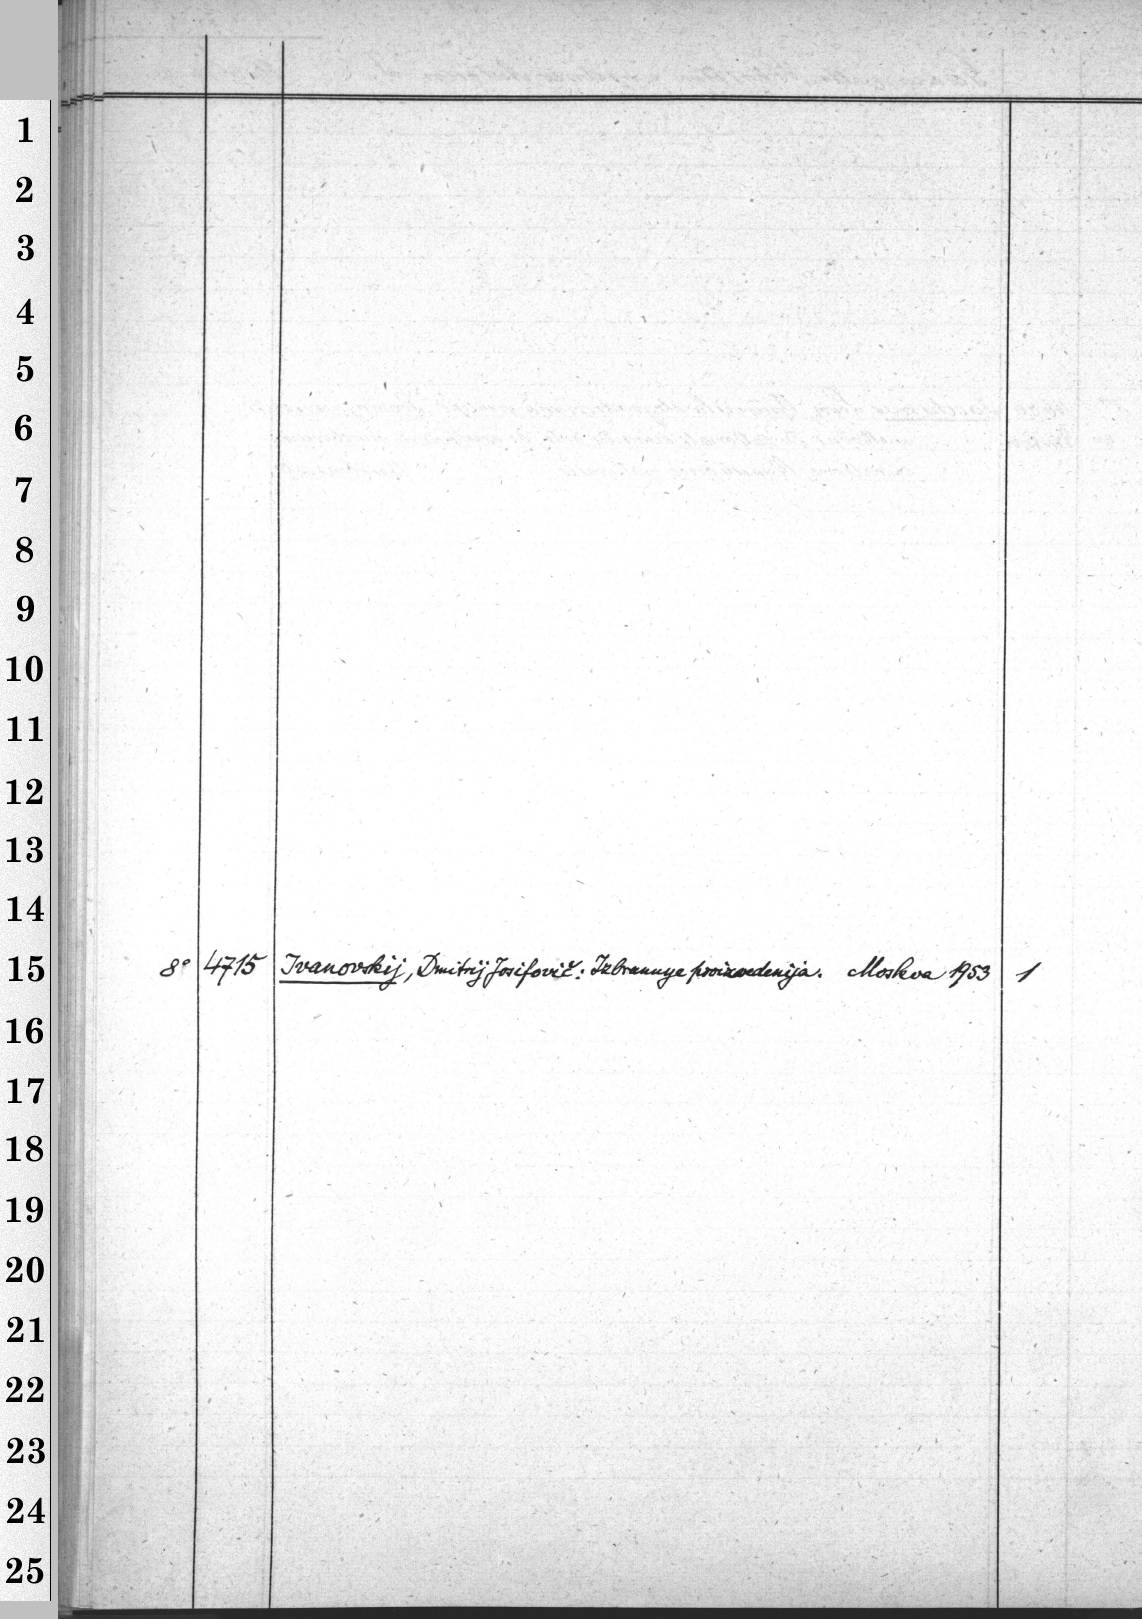 1
2
3
4
5
6
7
8
9
10
11
12
13
14
15 8° 4715 Ivanovskij, Dmitrij Josifovič: Izbrannye proizvedenija. Moskva 1953 1
16
17
18
19
20
21
22
23
24
25